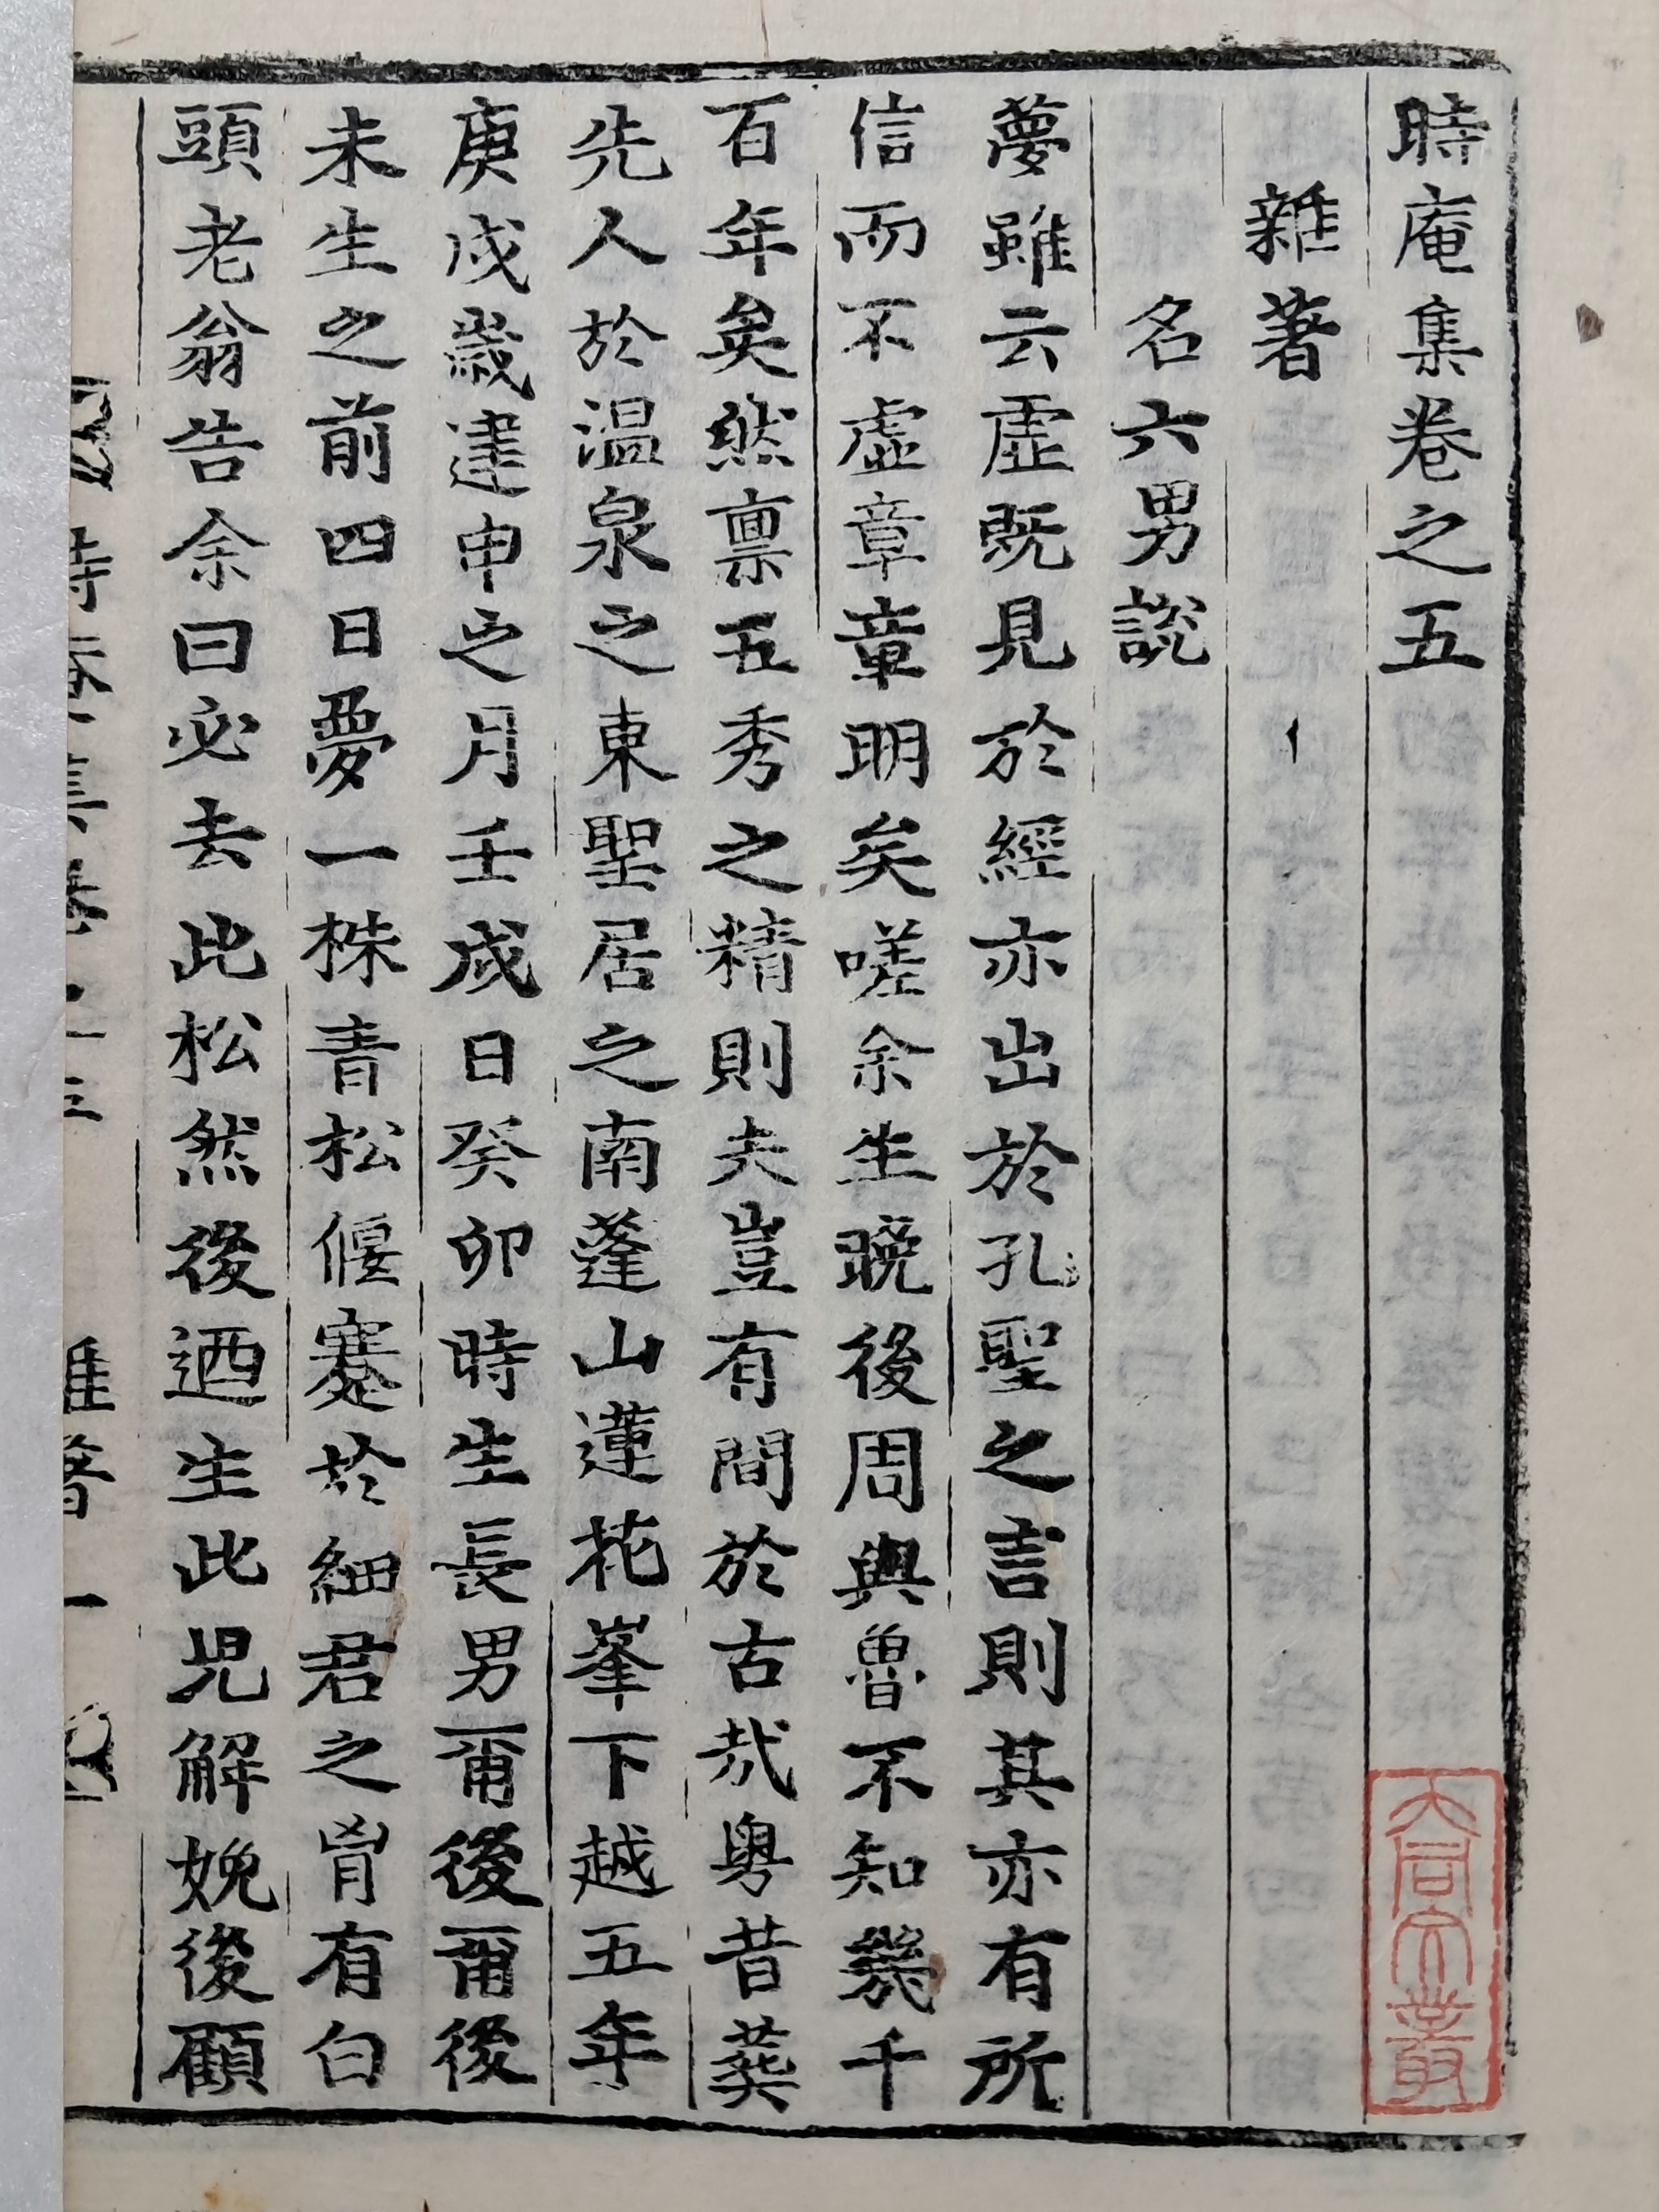 時庵集卷之五
雜著
名六男說
夢雖云虛既見於經亦出於孔聖之言則其亦有所
信而不虛章章明矣嗟余生晚後周與魯不知幾千
百年矣然禀五秀之精則夫豈有間於古哉粤昔葬
先人於溫泉之東聖居之南蓬山蓮花峯下越五年
庚戌歲建申之月壬戌日癸卯時生長男爾後爾後
未生之前四日夢一株青松偃蹇於細君之胷有白
頭老翁告余曰必去此松然後迺生此児解娩後顧
時庵集卷之五 雜著 一
大同宗叢